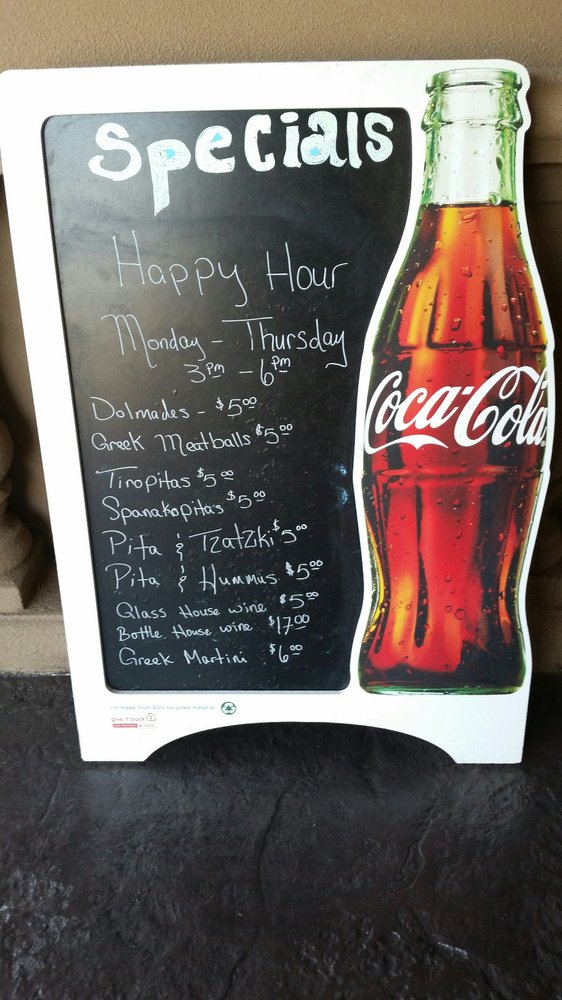 Specials
Happy Hour
Monday - Thursday
3pm - 6pm
Dolmades - $5.00
Greek Meatballs $5.00
Tiropitas $5.00
Spanakopitas $5.00
Pita & Tzatziki $5.00
Pita & Hummus $5.00
Glass House wine $5.00
Bottle House wine $17.00
Greek Martini $6.00
Coca-Cola
I'm made from 60% recycled material
give it back